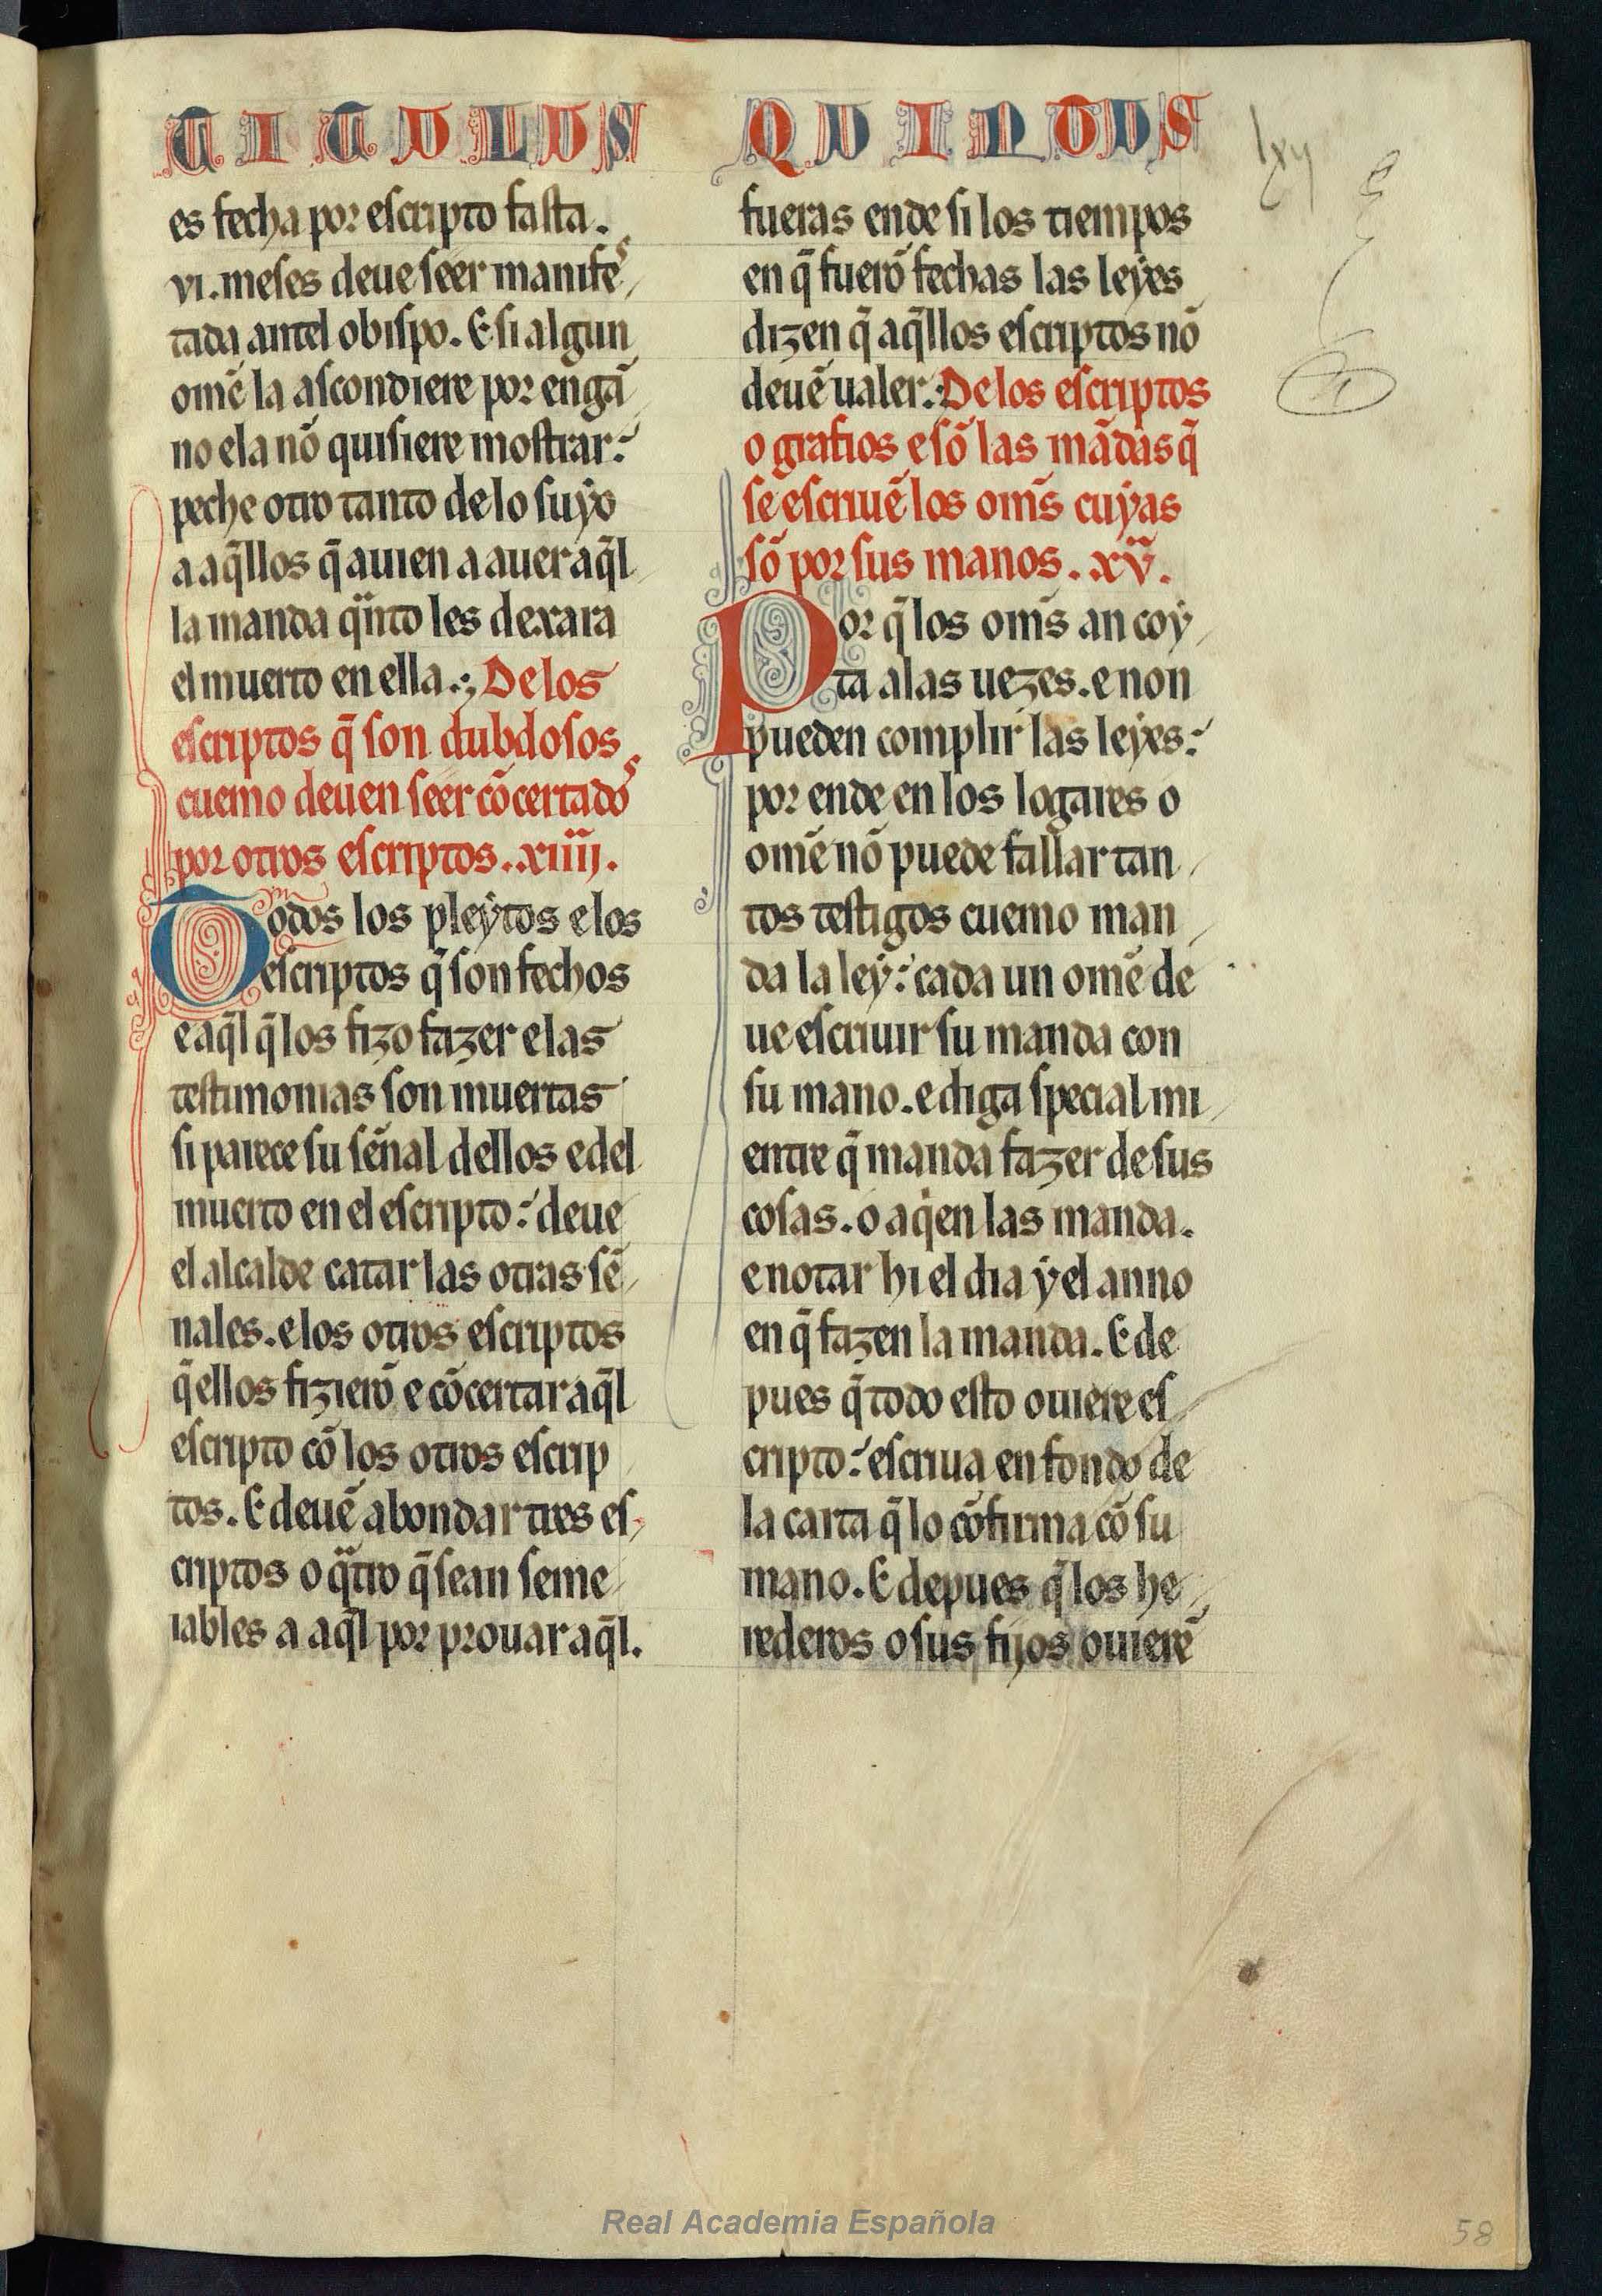 TITULUS QUINTUS
es fecha por escripto fasta.
vi. meses deue seer manifes
tada antel obispo. E si algun
omē la ascondiere por engā
no e la nō quisiere mostrar:
peche otro tanto de lo suyo
a aq̄llos q̄ auien a auer aq̄l
la manda q̄nto les dexara
el muerto en ella.; De los
escriptos q̄ son dubdosos
cuemo deuen seer cōcertados
por otros escriptos. .xiiij.
Todos los pleytos e los
escriptos q̄ son fechos
e aq̄l q̄ los fizo fazer e las
testimonias son muertas
si parece su sēnal dellos e del
muerto en el escripto: deue
el alcalde catar las otras sē
nales. e los otros escriptos
q̄ ellos fizierō e cōcertar aq̄l
escripto cō los otros escrip
tos. E deuē abondar tres es
criptos o q̄tro q̄ sean seme
iables a aq̄l por prouar aq̄l.
fueras ende si los tiempos
en q̄ fuerō fechas las leyes
dizen q̄ aq̄llos escriptos nō
deuē ualer.: De los escriptos
o grafios e sō las mādas q̄
se escriuē los om̄s cuyas
sō por sus manos. .xv.
Por q̄ los om̄s an coy
ta a las uezes. e non
pueden complir las leyes:
por ende en los logares o
omē nō puede fallar tan
tos testigos cuemo man
da la ley: cada un omē de
ue escriuir su manda con
su mano. e diga special mi
entre q̄ manda fazer de sus
cosas. o a q̄en las manda.
e notar hi el dia y el anno
en q̄ fazen la manda. E de
pues q̄ todo esto ouiere es
cripto: escriua en fondo de
la carta q̄ lo cōfirma cō su
mano. E depues q̄ los he
rederos o sus fijos ouierē
Real Academia Española
58